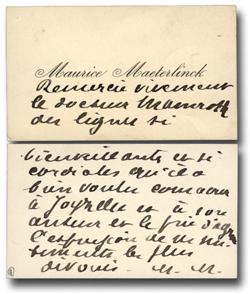 Maurice Maeterlinck
Remercie vivement
le docteur
des lignes si
bienveillantes et si
cordiales qu'il a
bien voulu consacrer
à Joyzelle et à son
auteur et le prie d'agréer
l'expression de ses
sentiments les plus
dévoués. M. M.